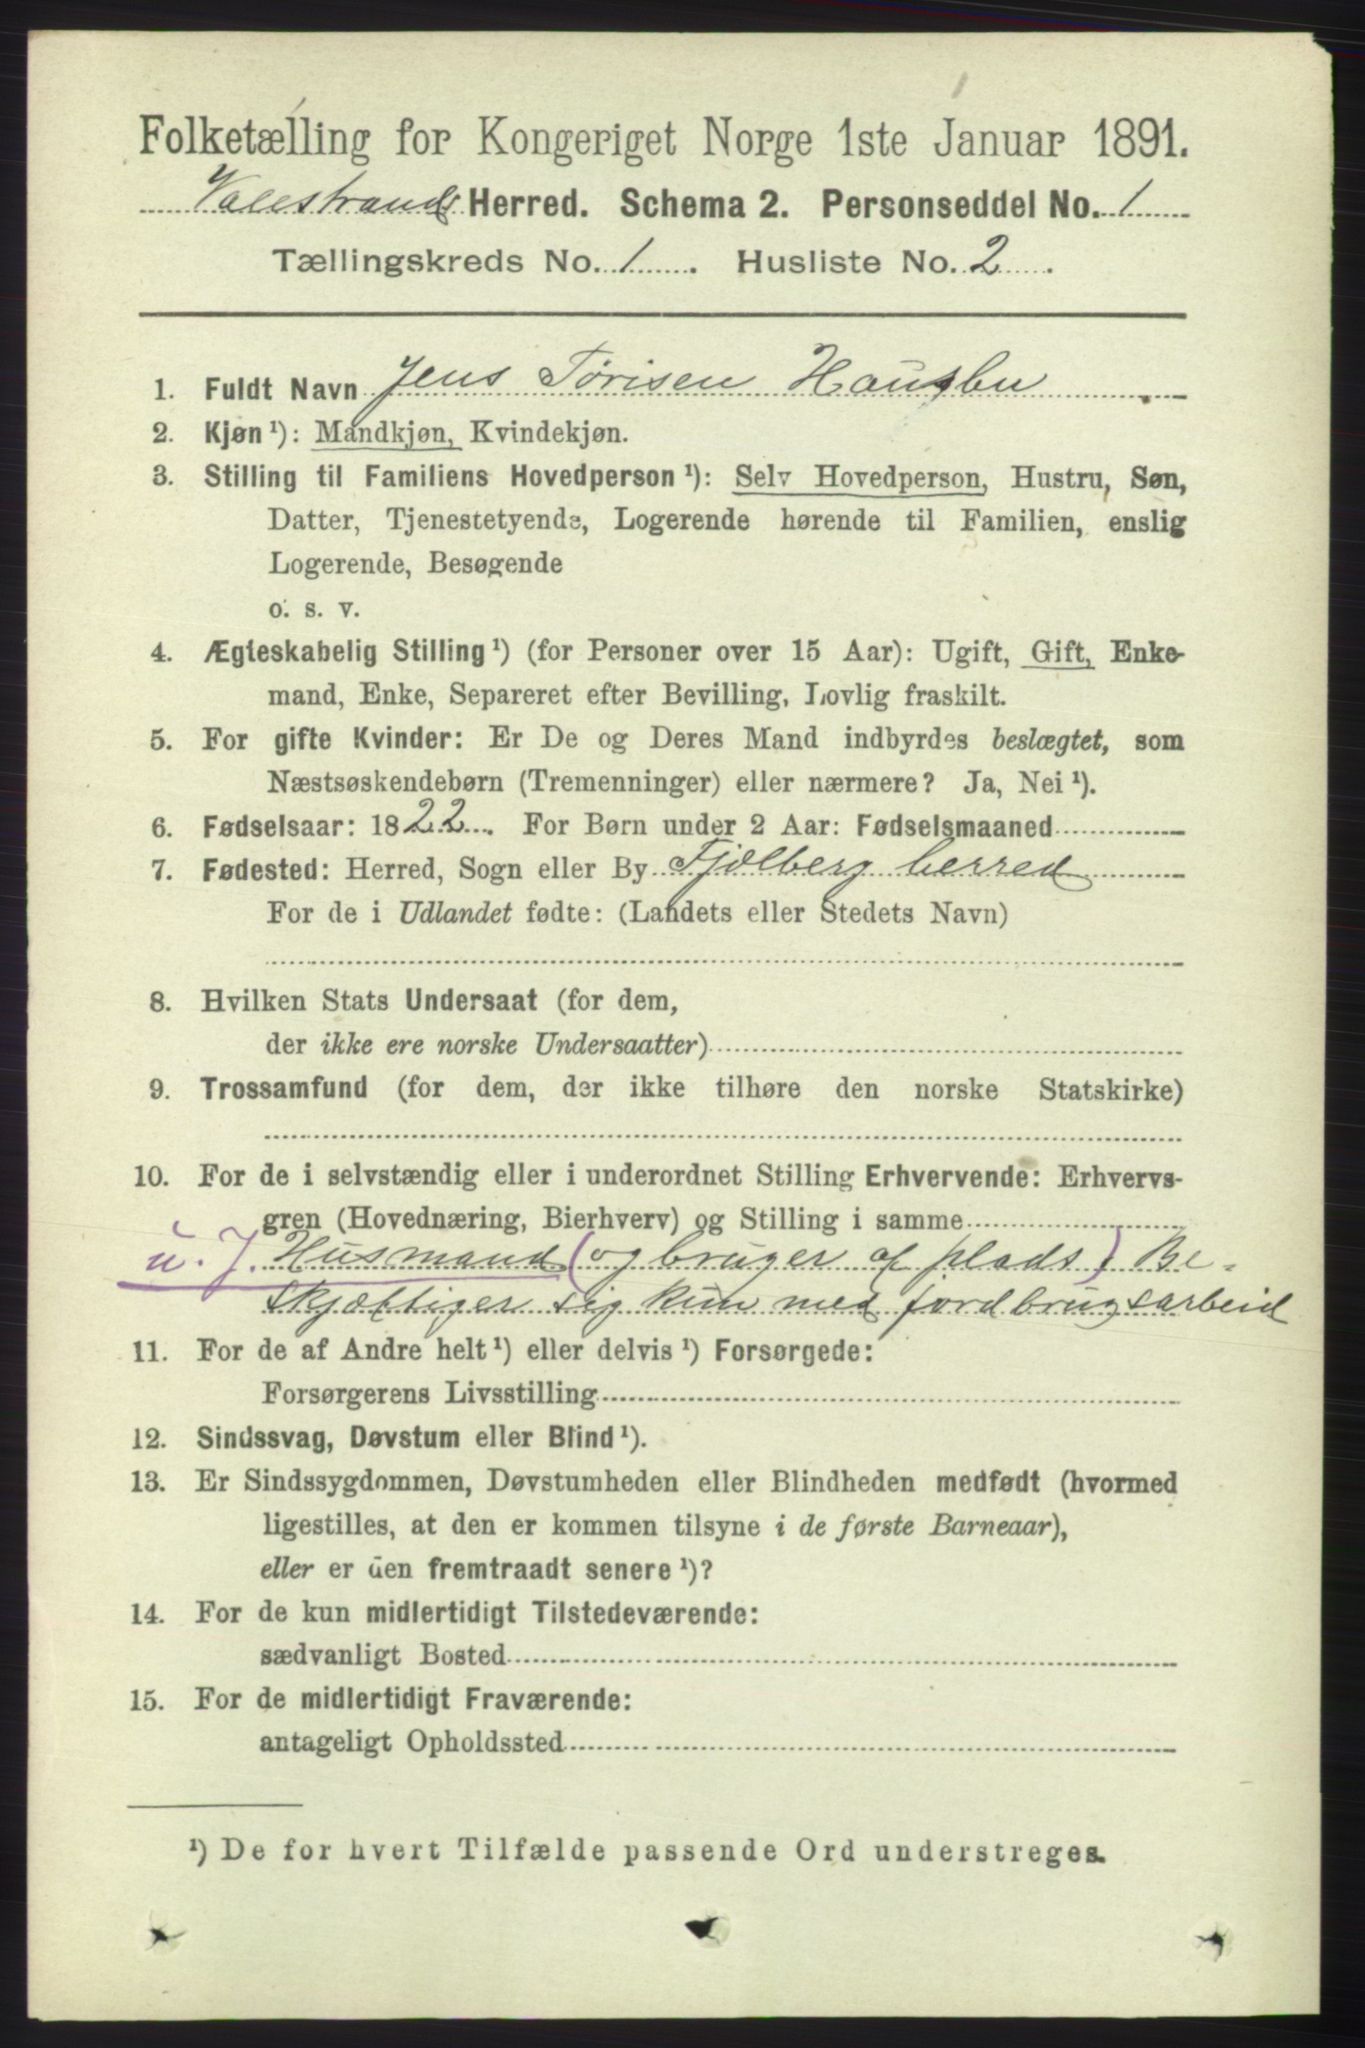 Folketælling for Kongeriget Norge 1ste Januar 1891.
Valestrands Herred. Schema 2. Personseddel No. 1
Tællingskreds No. 1. Husliste No. 2.
1. Fuldt Navn Jens Tørisen
2. Kjøn ¹): Mandkjøn, Kvindekjøn.
3. Stilling til Familiens Hovedperson ¹): Selv Hovedperson, Hustru, Søn,
Datter, Tjenestetyende, Logerende hørende til Familien, enslig
Logerende, Besøgende
o. s. v.
4. Ægteskabelig Stilling ¹) (for Personer over 15 Aar): Ugift, Gift, Enke-
mand, Enke, Separeret efter Bevilling, Lovlig fraskilt.
5. For gifte Kvinder: Er De og Deres Mand indbyrdes beslægtet, som
Næstsøskendebørn (Tremenninger) eller nærmere? Ja, Nei ¹).
6. Fødselsaar: 1822. For Børn under 2 Aar: Fødselsmaaned
7. Fødested: Herred, Sogn eller By Fjelberg herred
For de i Udlandet fødte: (Landets eller Stedets Navn)
8. Hvilken Stats Undersaat (for dem,
der ikke ere norske Undersaatter)
9. Trossamfund (for dem, der ikke tilhøre den norske Statskirke)
10. For de i selvstændig eller i underordnet Stilling Erhvervende: Erhvervs-
gren (Hovednæring, Bierhverv) og Stilling i samme
u. J. Husmand (og bruger af plads) Be-
skjæftiger sig kun med jordbrugsarbeid
11. For de af Andre helt ¹) eller delvis ¹) Forsørgede:
Forsørgerens Livsstilling
12. Sindssvag, Døvstum eller Blind ¹).
13. Er Sindssygdommen, Døvstumheden eller Blindheden medfødt (hvormed
ligestilles, at den er kommen tilsyne i de første Barneaar),
eller er den fremtraadt senere ¹)?
14. For de kun midlertidigt Tilstedeværende:
sædvanligt Bosted
15. For de midlertidigt Fraværende:
antageligt Opholdssted
¹) De for hvert Tilfælde passende Ord understreges.